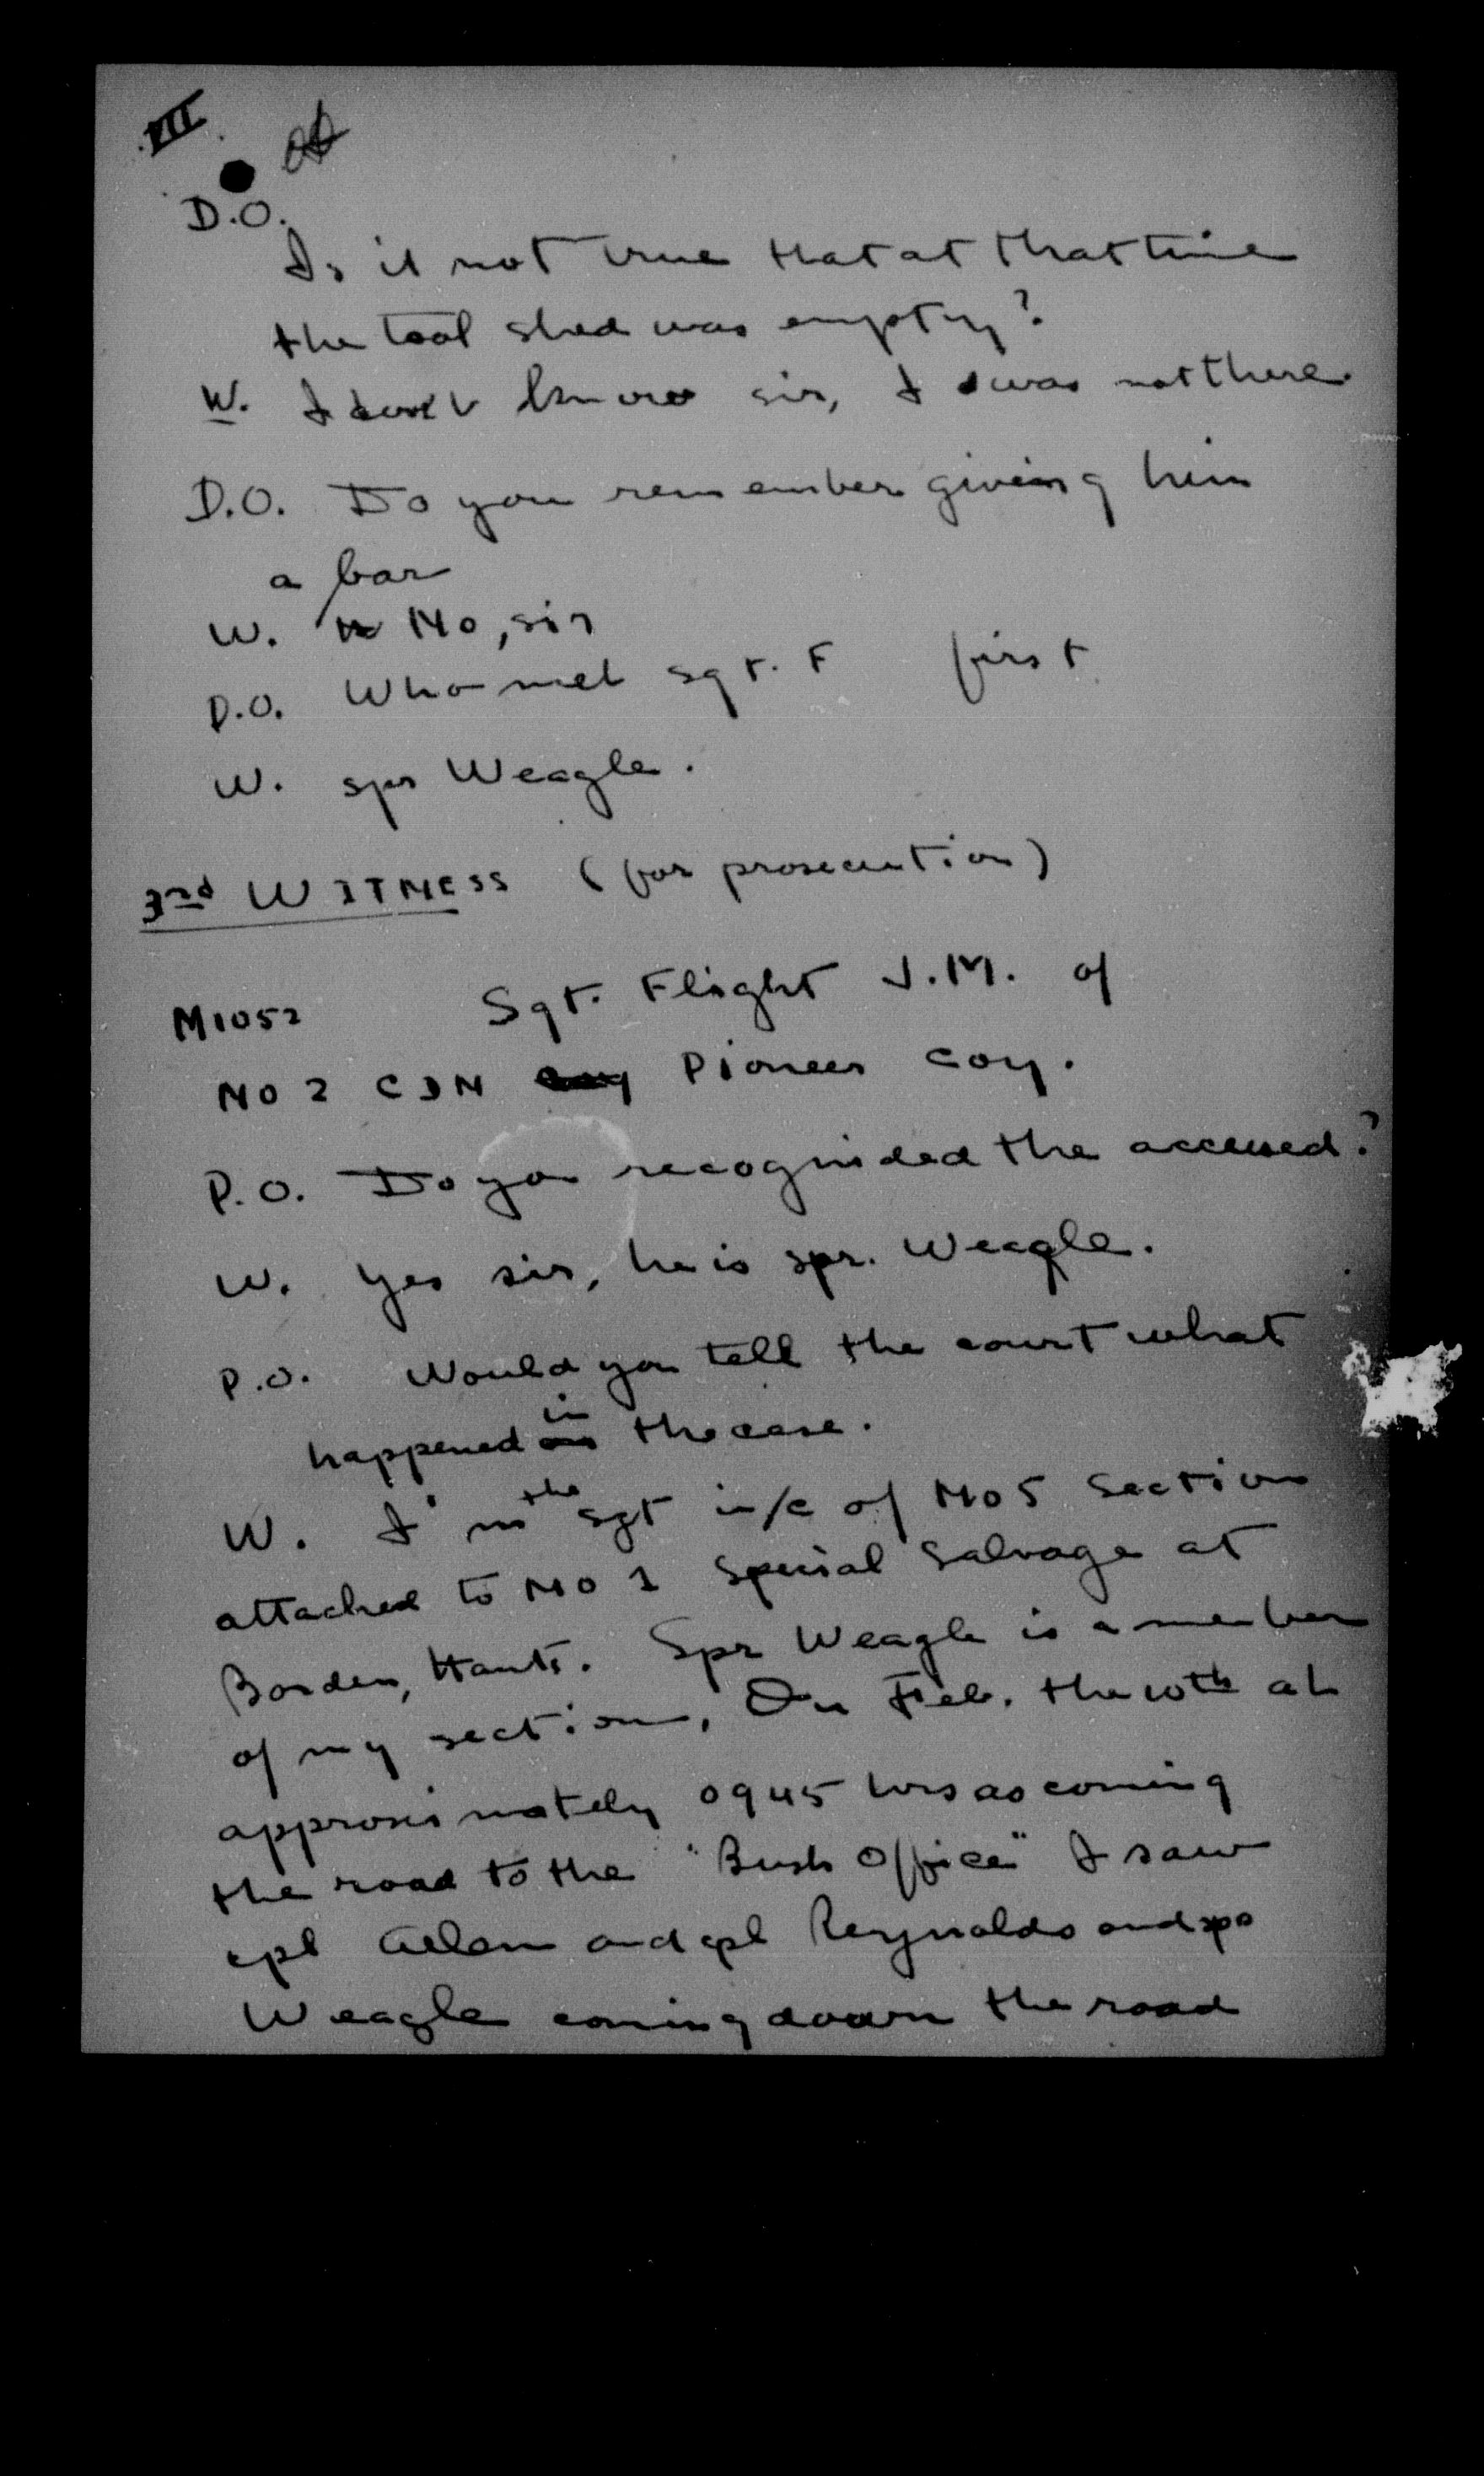 VII
D.O.
Is it not true that at that time
the tool shed was empty?
W. I don't know sir, I was not there.
D.O. Do you remember giving him
a bar
W. No, sir
D.O. Who met sgt. F first
W. spr Weagle.
3rd WITNESS (for prosecution)
M1052 Sgt. Flight J.M. of
NO 2 CDN Pioneer coy.
P.O. Do you recognided the accused?
W. Yes sir, he is spr. Weagle.
P.O. Would you tell the court what
happened in the case.
W. I'm the sgt i/c of NO 5 section
attached to NO 1 Special Salvage at
Borden, Hants. Spr Weagle is a member
of my section. On Feb. the 10th at
approximately 0945 hrs as coming
the road to the "Bush Office" I saw
cpl Allen and cpl Reynolds and spr
Weagle coming down the road